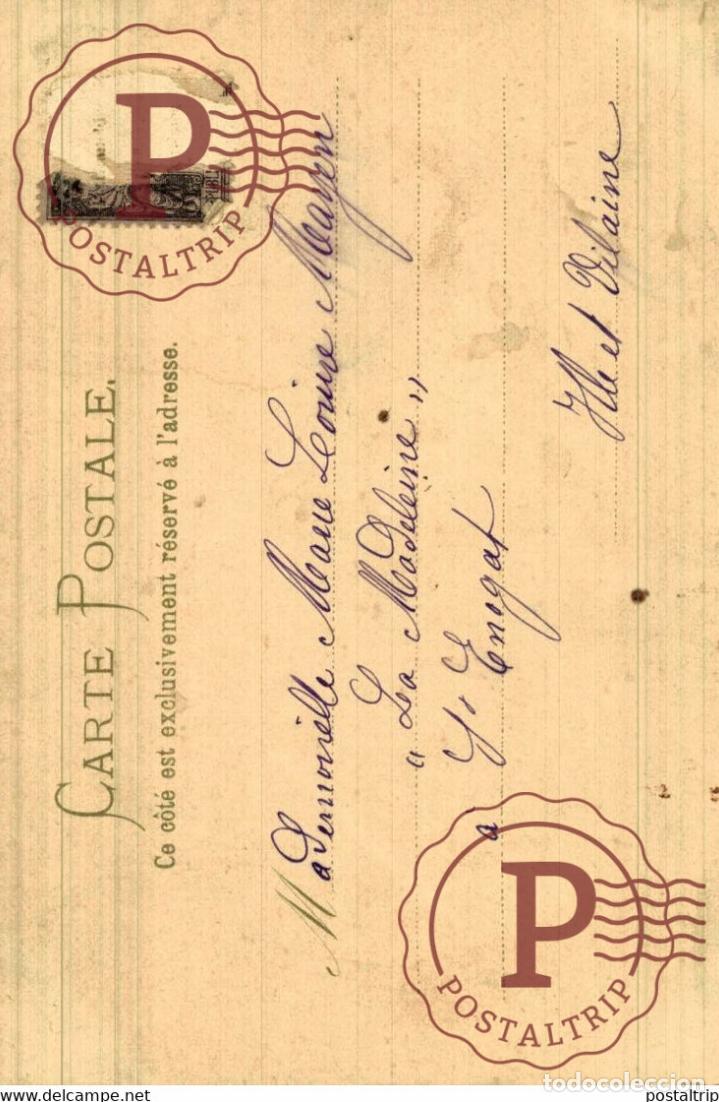 CARTE POSTALE.
Ce côté est exclusivement réservé à l'adresse.
Mademoiselle Marie Louise Mayen
"La Madeleine"
à St Enogat
Ille et Vilaine
P
POSTALTRIP
P
POSTALTRIP
todocoleccion.net
www.delcampe.net
postaltrip